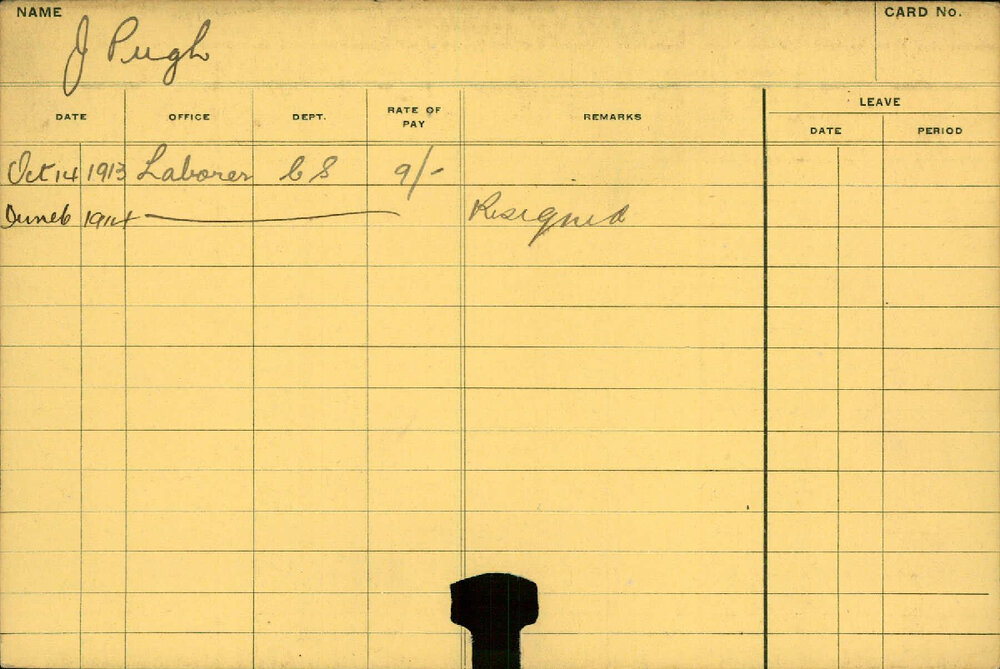 NAME J Pugh CARD No.
DATE OFFICE DEPT. RATE OF PAY REMARKS LEAVE
DATE PERIOD
Oct 14 1913 Laborer CS 9/-
June 6 1914 Resigned